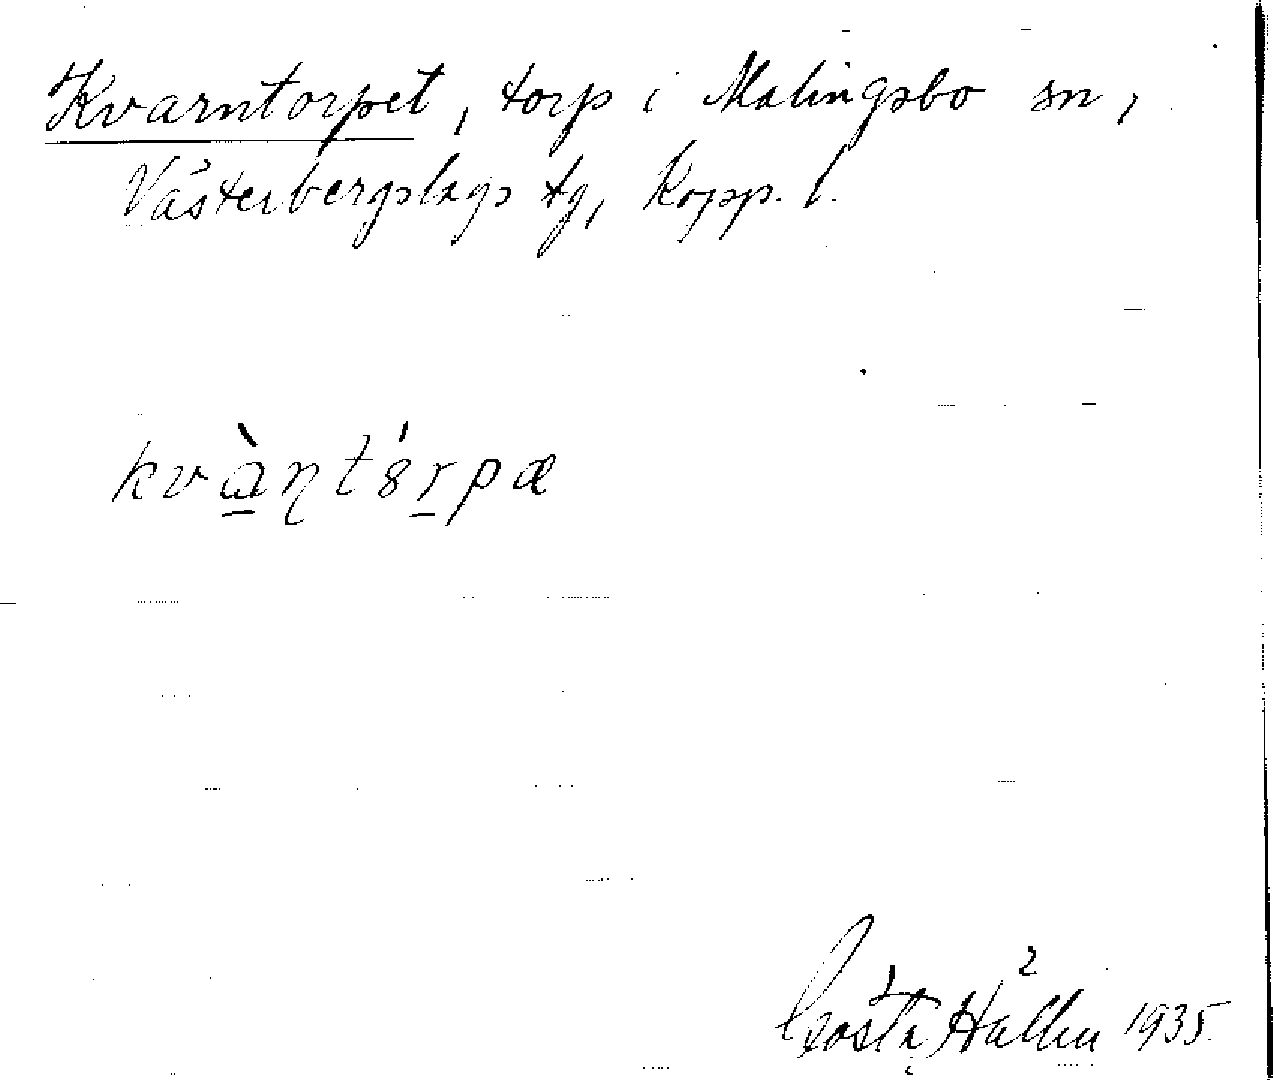 Kvarntorpet, torp i Malingsbo sn,
Västerbergslags tg, Kopp. l.
kvàṇtȣ́rpæ
Gösta Hallin 1935.